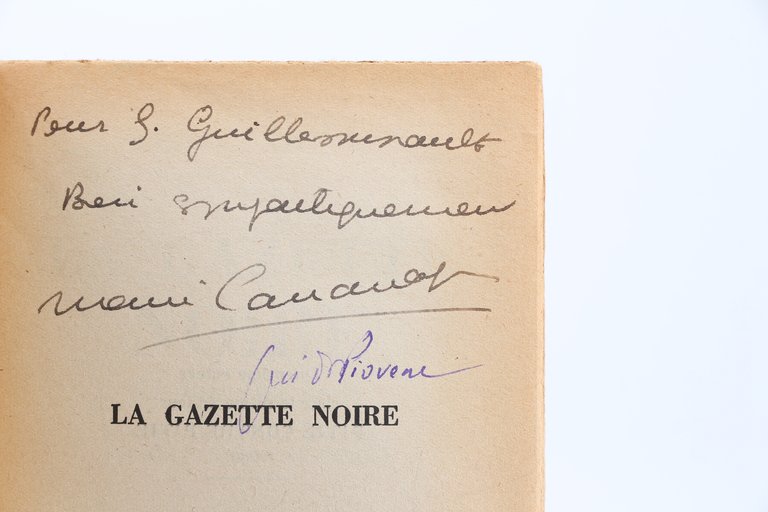 Pour G. Guilleminault
Bien sympathiquement
Marie Canavaggia
Guido Piovene
LA GAZETTE NOIRE